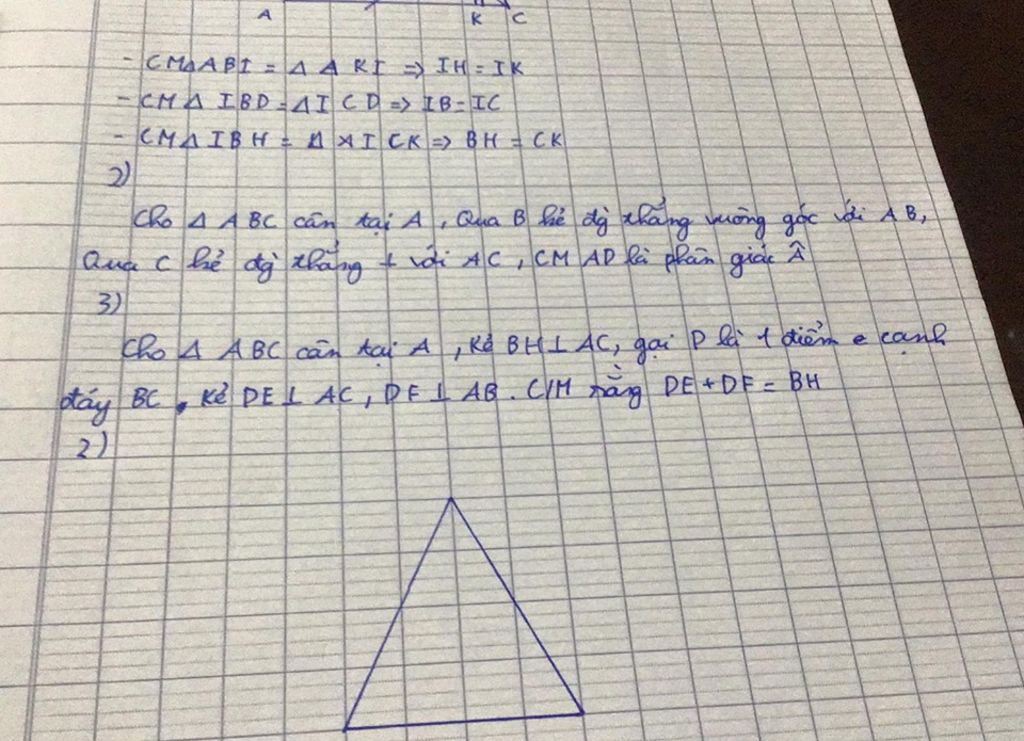 A K C
- CM Δ ABI = Δ AKI => IH = IK
- CM Δ IBD = Δ ICD => IB = IC
- CM Δ IBH = Δ ICK => BH = CK
2)
Cho Δ ABC cân tại A, Qua B kẻ đg thẳng vuông góc với AB,
Qua C kẻ đg thẳng ⊥ với AC, CM AD là phân giác Â
3)
Cho Δ ABC cân tại A, Kẻ BH ⊥ AC, gọi D là 1 điểm e cạnh
đáy BC. Kẻ DE ⊥ AC, DF ⊥ AB. C/M rằng DE + DF = BH
2)